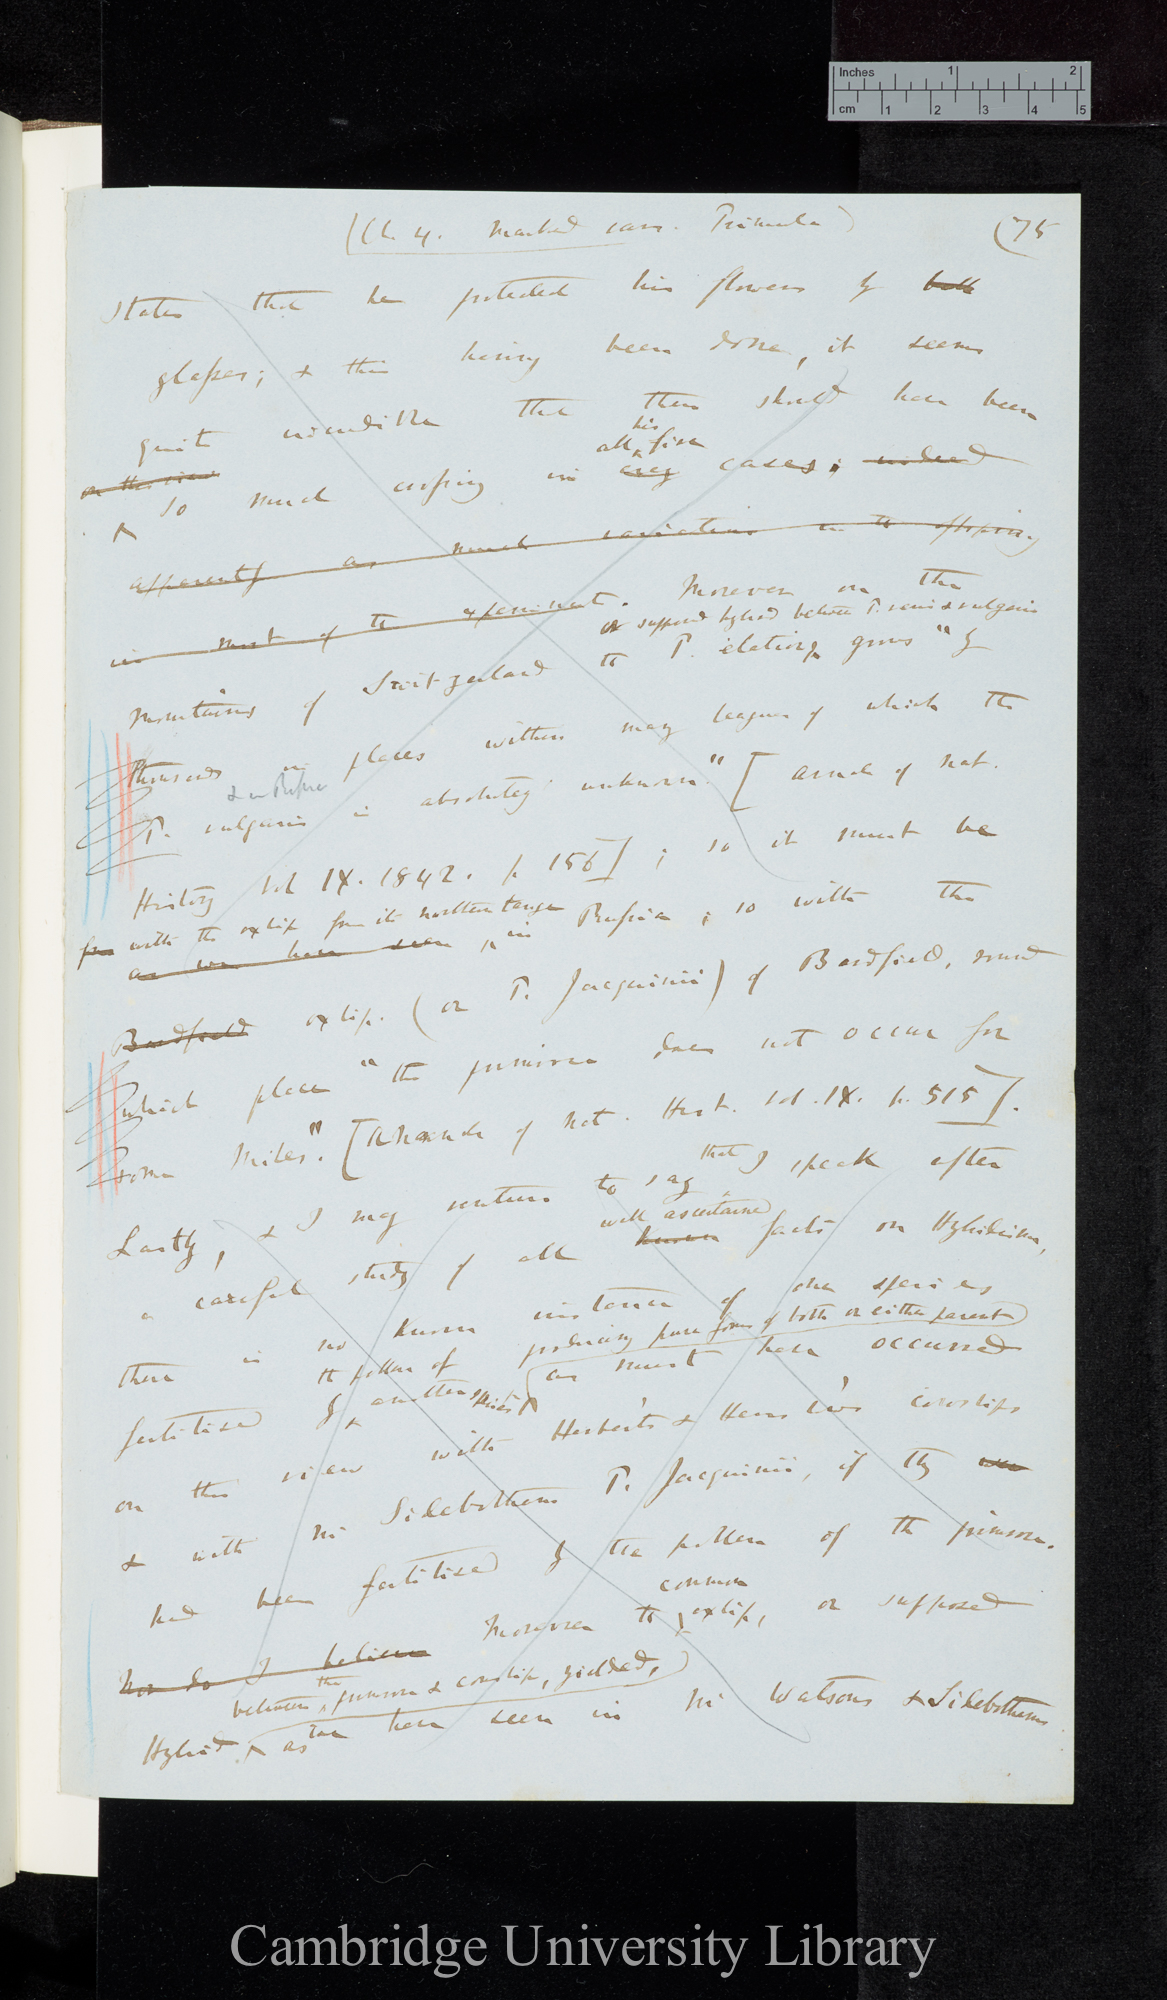 Inches 1 2
cm 1 2 3 4 5
(Ch. 4. Marked cases. Primula)
(75
states that he protected his flowers by bell
glasses; & this having been done, it seems
quite incredible that there should have been
his
all five
on this view
so much crossing in every cases; indeed
apparently as much variation in the offspring
in most of the experiment. Moreover on the
or supposed hybrid between P. veris & vulgaris
mountains of Switzerland the P. elatior, grows "by
thousands in places within many leagues of which the
& in Russia
P. vulgaris is absolutely unknown." [Annals of Nat.
History Vol IX. 1842. p 156]; so it must be
from with the oxlip from its northern range
as we have seen, in Russia; so with the
Bardfield oxlip. (or P. Jacquinii) of Bardfield, round
which place "the primrose does not occur for
some miles." [Annals of Nat. Hist. Vol. IX. p. 515].
that
Lastly, & I may venture to say I speak after
well ascertained
a careful study of all known facts on Hybridism,
there is no known instance of one species
the pollen of producing pure forms of both or either parent
fertilised by another species as must have occurred
on this view with Herbert's & Henslow's cowslips
& with Mr Sidebotham P. Jacquinii, if they were
had been fertilised by the pollen of the primrose.
common
Nor do I believe Moreover the oxlip, or supposed
between the primrose & cowslip, yielded,
Hybrid, as we have seen in Mr Watsons & Sidebothams
Cambridge University Library